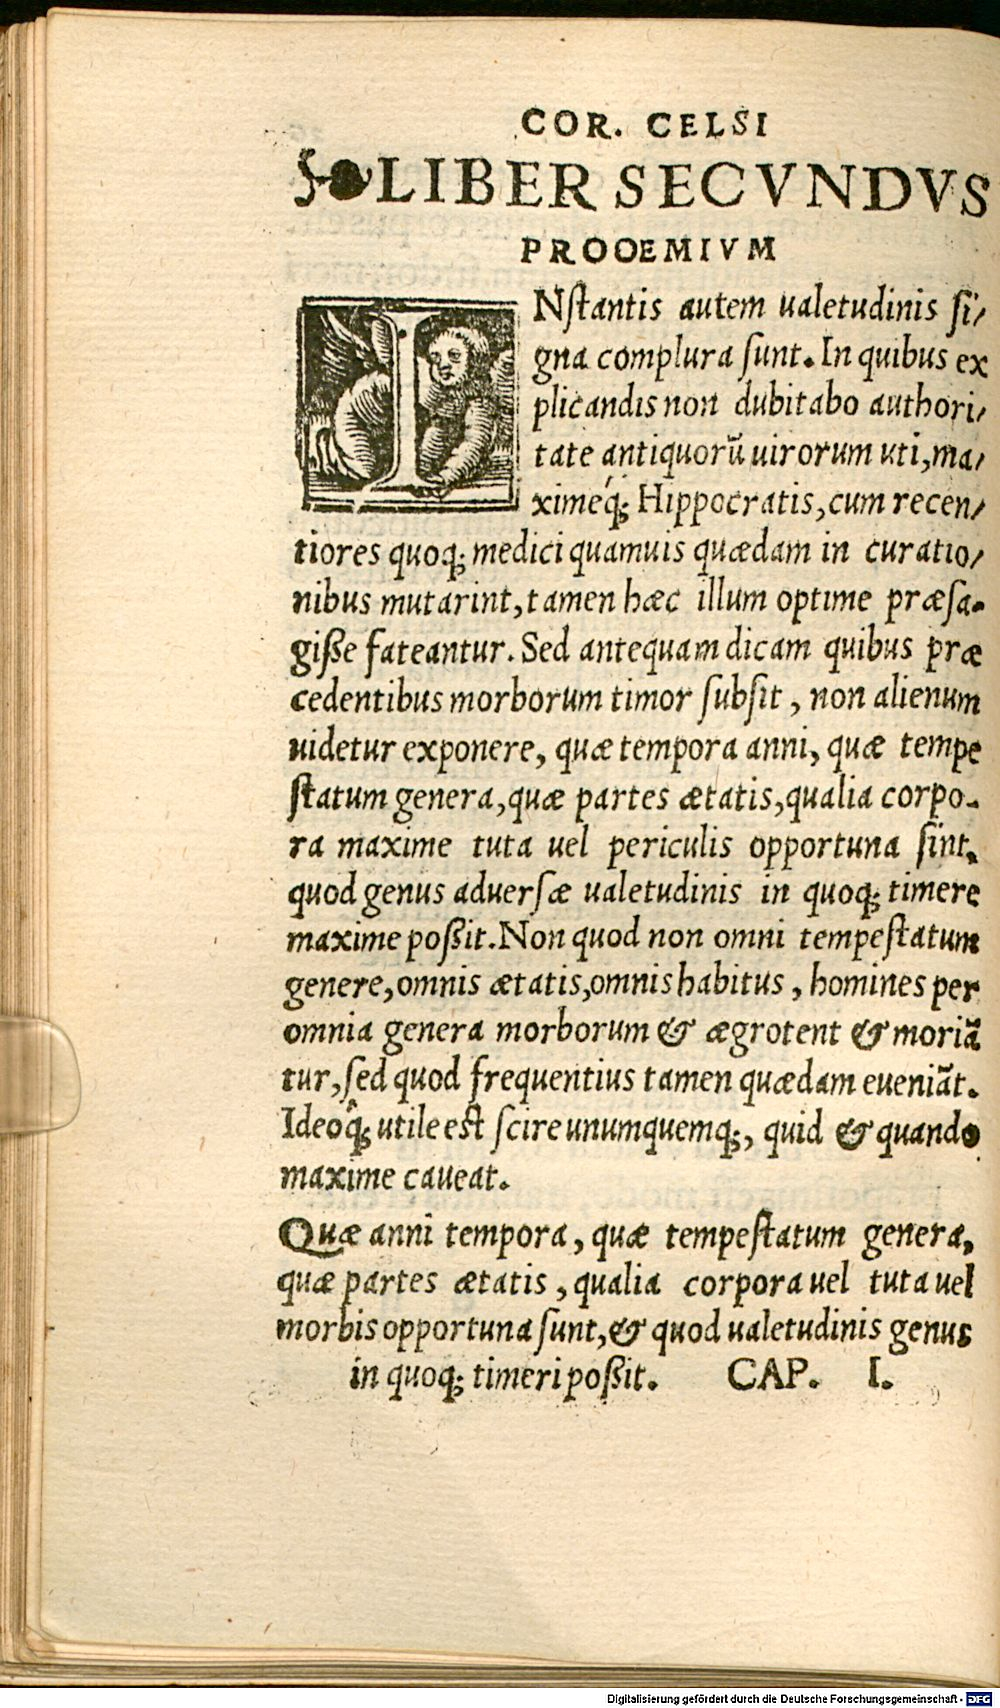 COR. CELSI
LIBER SECVNDVS
PROOEMIVM
INſtantis autem ualetudinis ſi/
gna complura ſunt. In quibus ex
plicandis non dubitabo authori/
tate antiquorũ uirorum uti, ma/
ximéq; Hippocratis, cum recen/
tiores quoq; medici quamuis quædam in curatio/
nibus mutarint, tamen hæc illum optime præſa-
giſſe fateantur. Sed antequam dicam quibus præ
cedentibus morborum timor ſubſit, non alienum
uidetur exponere, quæ tempora anni, quæ tempe
ſtatum genera, quæ partes ætatis, qualia corpo-
ra maxime tuta uel periculis opportuna ſint,
quod genus aduerſæ ualetudinis in quoq; timere
maxime poßit. Non quod non omni tempeſtatum
genere, omnis ætatis, omnis habitus, homines per
omnia genera morborum & ægrotent & moriã
tur, ſed quod frequentius tamen quædam eueniãt.
Ideoq́; utile eſt ſcire unumquemq;, quid & quando
maxime caueat.
Quæ anni tempora, quæ tempeſtatum genera,
quæ partes ætatis, qualia corpora uel tuta uel
morbis opportuna ſunt, & quod ualetudinis genus
in quoq; timeri poßit. CAP. I.
Digitalisierung gefördert durch die Deutsche Forschungsgemeinschaft - DFG